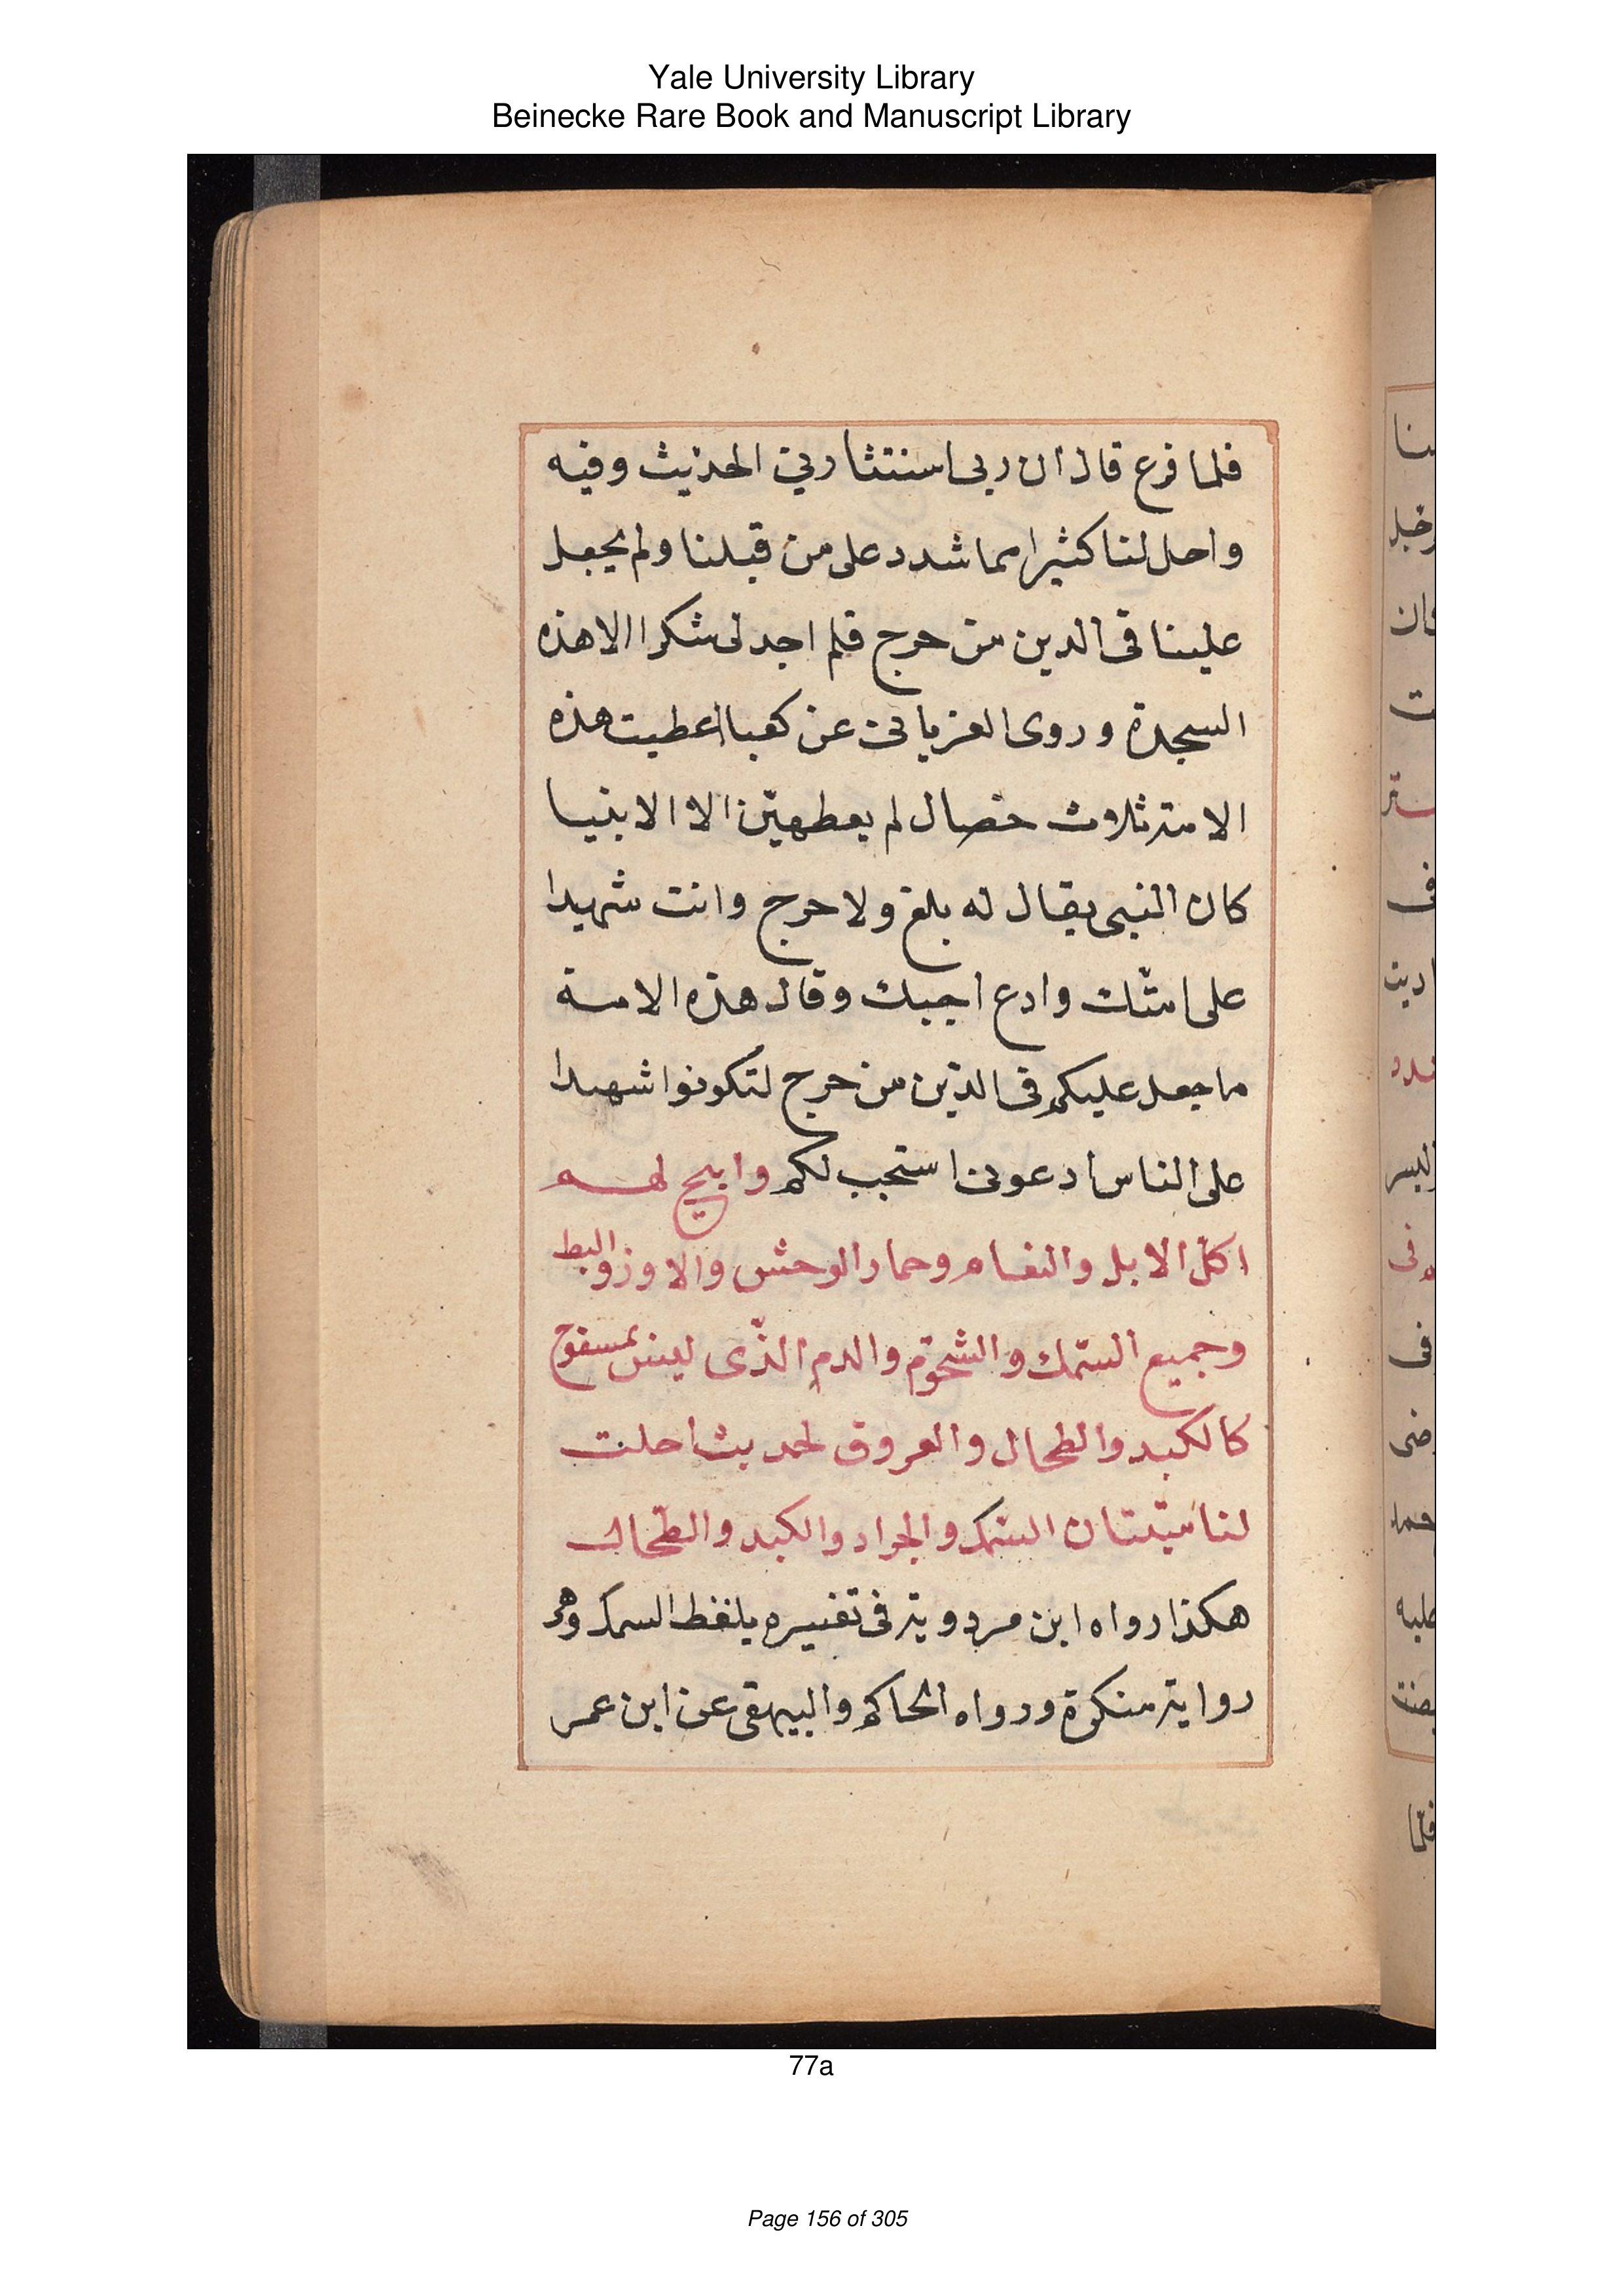 Yale University Library
Beinecke Rare Book and Manuscript Library
فلما فرع قال ان ربى استنثاربي الحديث وفيه
واحل لنا كثيرا مما شدد على من قبلنا ولم يجعل
علينا فى الدين من حرج فلم اجد لى شكرا الا هذه
السجدة وروى الفريابى عن كعبا اعطيت هذه
الامة ثلاث خصال لم يعطهيّن الا الانبيا
كان النبى يقال له بلغ ولا حرج وانت شهيدا
على امتك وادع اجبك وقال هذه الامة
ما جعل عليكم فى الدين من حرج لتكونوا شهدا
على الناس ادعونى استجب لكم وابيح لهم
اكل الابل والنعام وحمار الوحش والاوز والبط
وجميع السّمك والشحوم والدم الذّى ليس بمسفوح
كالكبد والطحال والعروق لحديث احلت
لنا ميتتان السّمك والجراد والكبد والطّحال
هكذا رواه ابن مردوية فى تفسيره بلفظ السمك وهو
رواية منكرة ورواه الحاكم والبيهقى عن ابن عمر
77a
Page 156 of 305